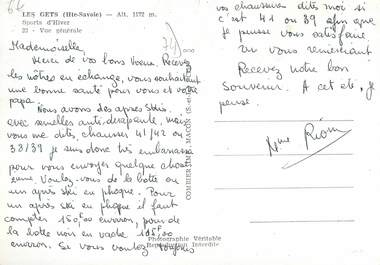 64
LES GETS (Hte-Savoie) — Alt. 1172 m.
Sports d'Hiver
22 - Vue générale
74
Mademoiselle,
Merci de vos bons voeux. Recevez
les nôtres en échange, vous souhaitant
une bonne santé pour vous et votre
papa.
Nous avons des apres skis,
avec semelles anti-dérapante, mais
vous me dites, chausser 41/42 ou
38/39 je suis donc très embarrassée
pour vous envoyer quelque chose
Voulez-vous de la botte ou
un après ski en phoque. Pour
un après ski en phoque il faut
compter 150,00 environ, pour de
la botte noir en vache
environ. Si vous voulez toujours
COMBIER IMP. MACON
Photographie Véritable
Reproduction Interdite
vos chaussures dites moi si
c'est 41 ou 39 afin que
je puisse vous satisfaire.
En vous remerciant
Recevez notre bon
Souvenir. A cet été, je
pense.
Mme